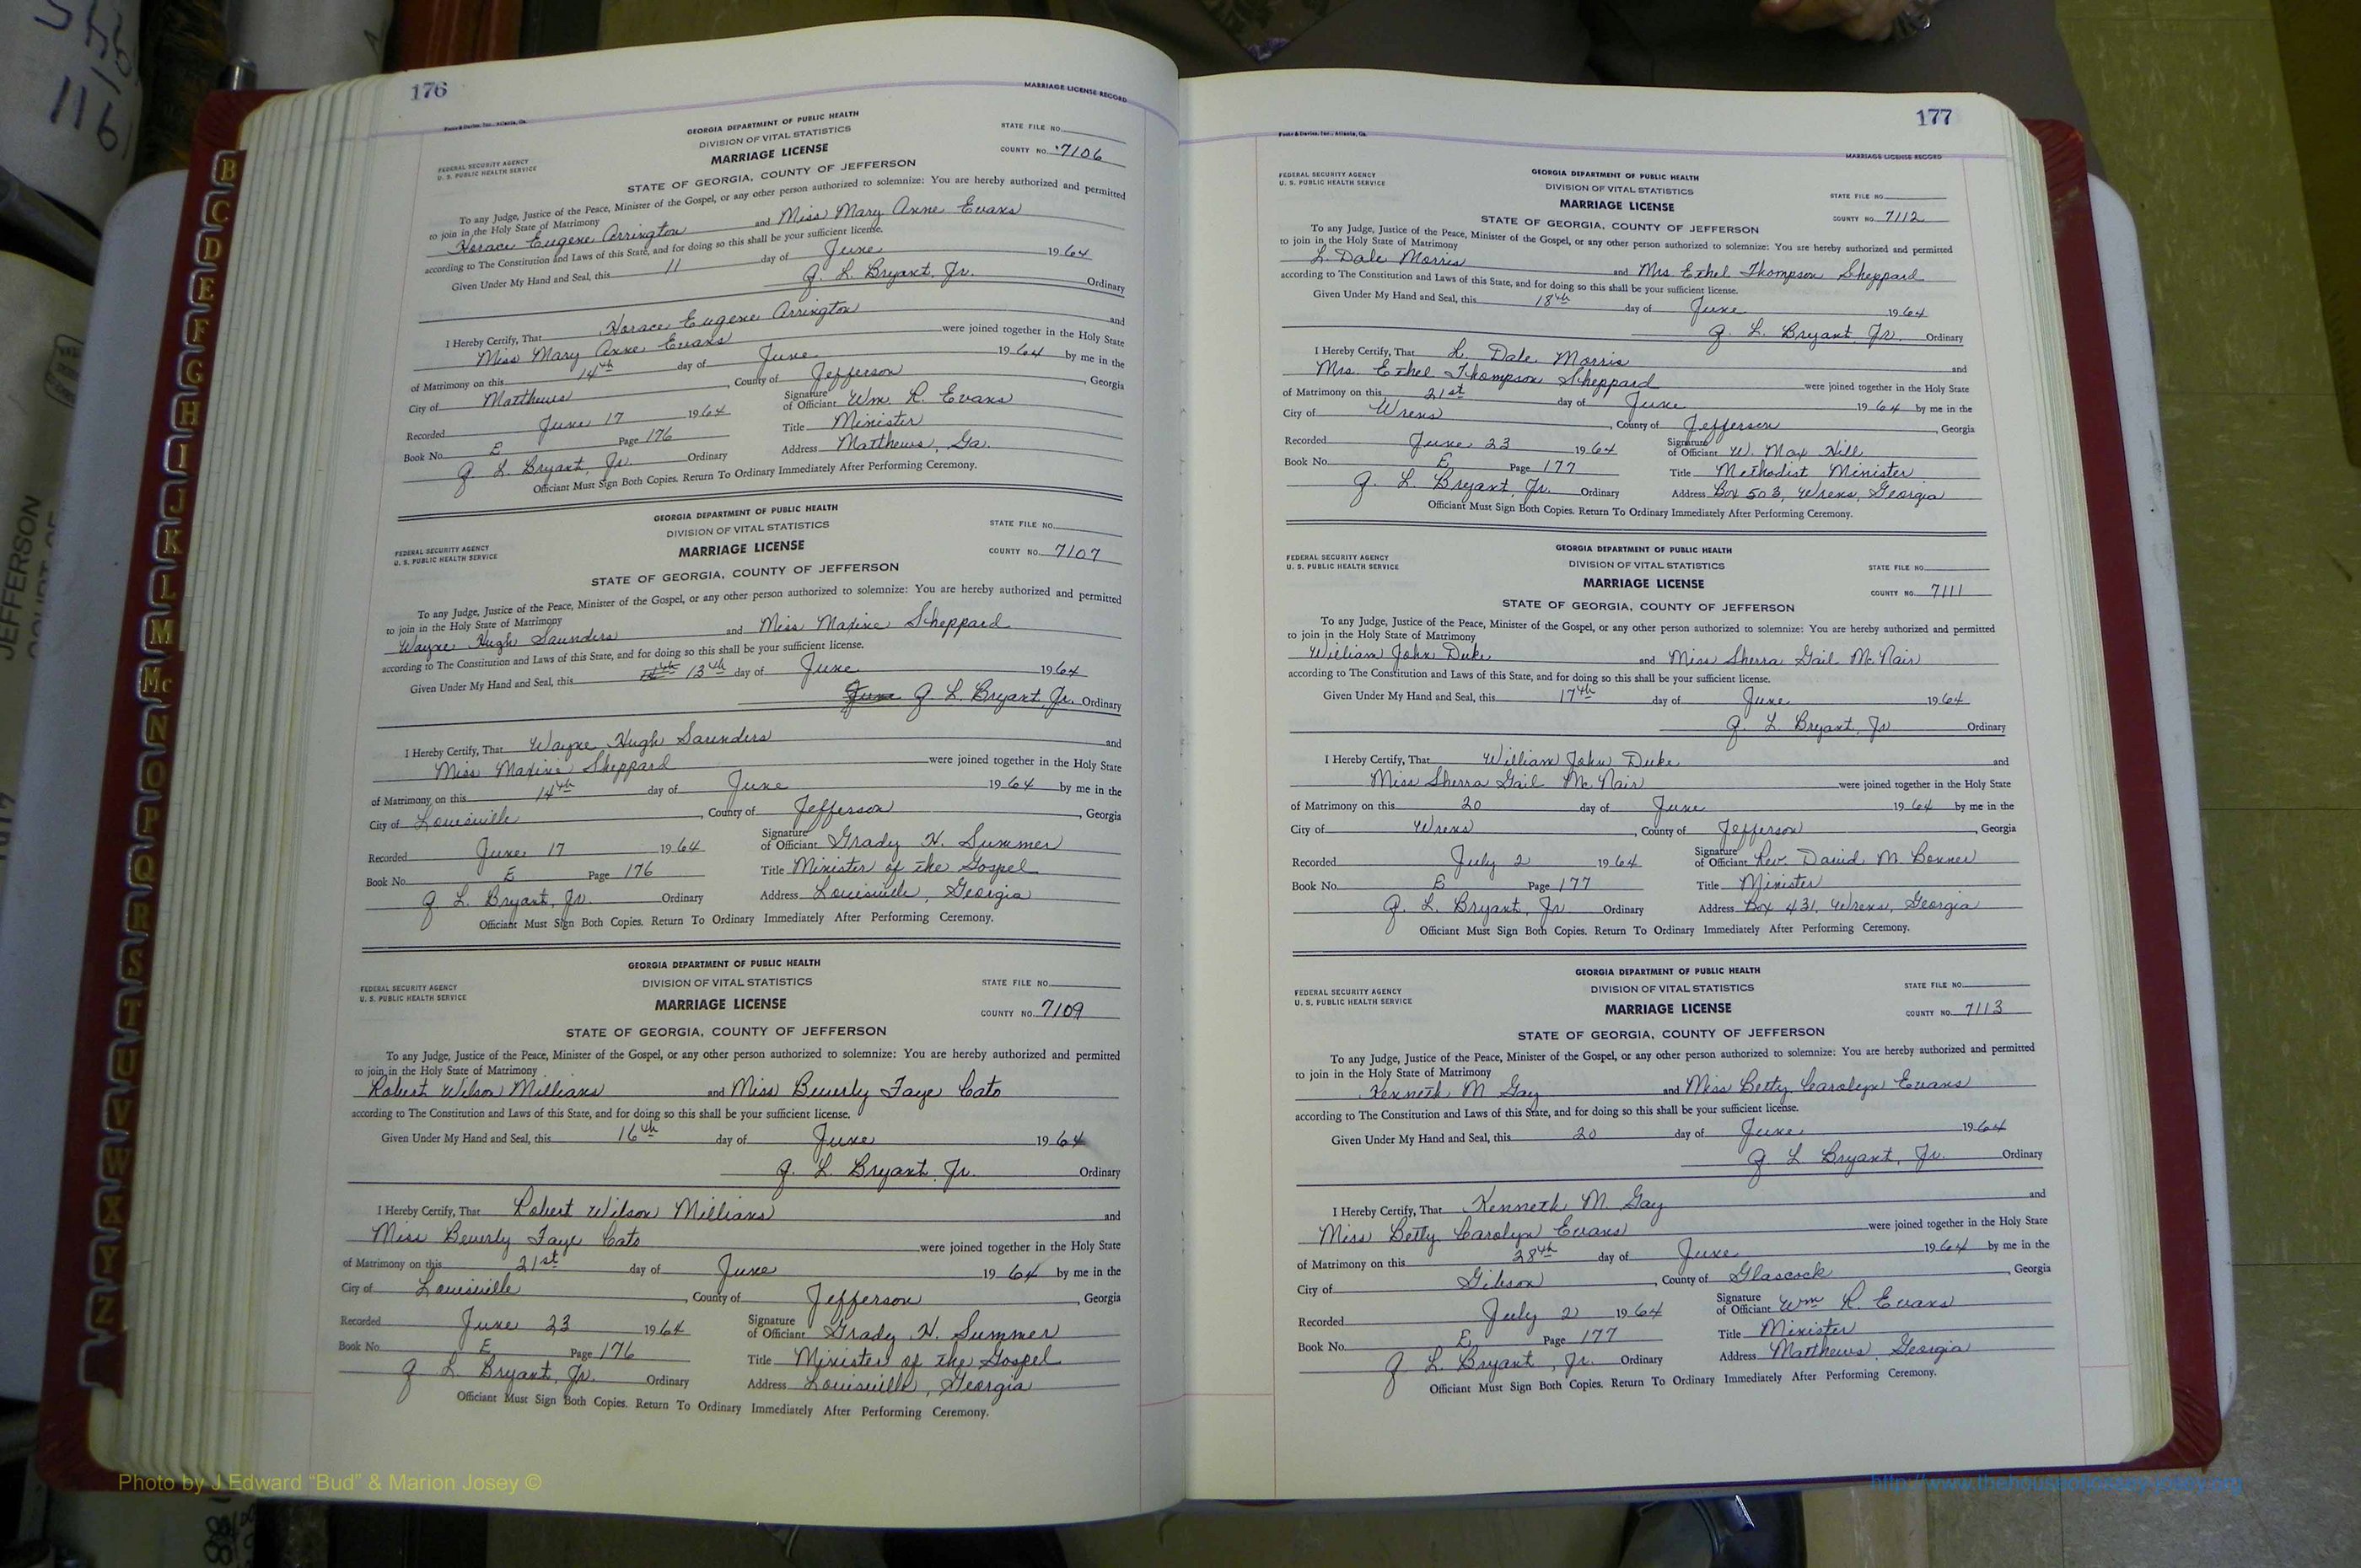 176
MARRIAGE LICENSE RECORD
Foote & Davies, Inc., Atlanta, Ga.
GEORGIA DEPARTMENT OF PUBLIC HEALTH
DIVISION OF VITAL STATISTICS
STATE FILE NO.
FEDERAL SECURITY AGENCY
U. S. PUBLIC HEALTH SERVICE
MARRIAGE LICENSE
COUNTY NO. 7106
STATE OF GEORGIA, COUNTY OF JEFFERSON
To any Judge, Justice of the Peace, Minister of the Gospel, or any other person authorized to solemnize: You are hereby authorized and permitted
to join in the Holy State of Matrimony
Horace Eugene Arrington and Miss Mary Anne Evans
according to The Constitution and Laws of this State, and for doing so this shall be your sufficient license.
Given Under My Hand and Seal, this 11 day of June 1964
Q. L. Bryant, Jr. Ordinary
I Hereby Certify, That Horace Eugene Arrington and
Miss Mary Anne Evans were joined together in the Holy State
of Matrimony on this 14th day of June 1964 by me in the
City of Matthews, County of Jefferson, Georgia
Recorded June 17 1964 Signature of Officiant Wm. R. Evans
Book No. E Page 176 Title Minister
Q. L. Bryant, Jr. Ordinary Address Matthews, Ga.
Officiant Must Sign Both Copies. Return To Ordinary Immediately After Performing Ceremony.
GEORGIA DEPARTMENT OF PUBLIC HEALTH
DIVISION OF VITAL STATISTICS
STATE FILE NO.
FEDERAL SECURITY AGENCY
U. S. PUBLIC HEALTH SERVICE
MARRIAGE LICENSE
COUNTY NO. 7107
STATE OF GEORGIA, COUNTY OF JEFFERSON
To any Judge, Justice of the Peace, Minister of the Gospel, or any other person authorized to solemnize: You are hereby authorized and permitted
to join in the Holy State of Matrimony
Wayne Hugh Saunders and Miss Maxine Sheppard
according to The Constitution and Laws of this State, and for doing so this shall be your sufficient license.
Given Under My Hand and Seal, this 13th day of June 1964
June Q. L. Bryant, Jr. Ordinary
I Hereby Certify, That Wayne Hugh Saunders and
Miss Maxine Sheppard were joined together in the Holy State
of Matrimony on this 14th day of June 1964 by me in the
City of Louisville, County of Jefferson, Georgia
Recorded June 17 1964 Signature of Officiant Grady H. Summer
Book No. E Page 176 Title Minister of the Gospel
Q. L. Bryant, Jr. Ordinary Address Louisville, Georgia
Officiant Must Sign Both Copies. Return To Ordinary Immediately After Performing Ceremony.
GEORGIA DEPARTMENT OF PUBLIC HEALTH
DIVISION OF VITAL STATISTICS
STATE FILE NO.
FEDERAL SECURITY AGENCY
U. S. PUBLIC HEALTH SERVICE
MARRIAGE LICENSE
COUNTY NO. 7109
STATE OF GEORGIA, COUNTY OF JEFFERSON
To any Judge, Justice of the Peace, Minister of the Gospel, or any other person authorized to solemnize: You are hereby authorized and permitted
to join in the Holy State of Matrimony
Robert Wilson Millians and Miss Beverly Faye Cato
according to The Constitution and Laws of this State, and for doing so this shall be your sufficient license.
Given Under My Hand and Seal, this 16th day of June 1964
Q. L. Bryant, Jr. Ordinary
I Hereby Certify, That Robert Wilson Millians and
Miss Beverly Faye Cato were joined together in the Holy State
of Matrimony on this 21st day of June 1964 by me in the
City of Louisville, County of Jefferson, Georgia
Recorded June 23 1964 Signature of Officiant Grady H. Summer
Book No. E Page 176 Title Minister of the Gospel
Q. L. Bryant, Jr. Ordinary Address Louisville, Georgia
Officiant Must Sign Both Copies. Return To Ordinary Immediately After Performing Ceremony.
177
MARRIAGE LICENSE RECORD
Foote & Davies, Inc., Atlanta, Ga.
GEORGIA DEPARTMENT OF PUBLIC HEALTH
DIVISION OF VITAL STATISTICS
STATE FILE NO.
FEDERAL SECURITY AGENCY
U. S. PUBLIC HEALTH SERVICE
MARRIAGE LICENSE
COUNTY NO. 7112
STATE OF GEORGIA, COUNTY OF JEFFERSON
To any Judge, Justice of the Peace, Minister of the Gospel, or any other person authorized to solemnize: You are hereby authorized and permitted
to join in the Holy State of Matrimony
L. Dale Morris and Mrs Ethel Thompson Sheppard
according to The Constitution and Laws of this State, and for doing so this shall be your sufficient license.
Given Under My Hand and Seal, this 18th day of June 1964
Q. L. Bryant Jr. Ordinary
I Hereby Certify, That L. Dale Morris and
Mrs. Ethel Thompson Sheppard were joined together in the Holy State
of Matrimony on this 21st day of June 1964 by me in the
City of Wrens, County of Jefferson, Georgia
Recorded June 23 1964 Signature of Officiant W. Max Hill
Book No. E Page 177 Title Methodist Minister
Q. L. Bryant, Jr. Ordinary Address Box 503, Wrens, Georgia
Officiant Must Sign Both Copies. Return To Ordinary Immediately After Performing Ceremony.
GEORGIA DEPARTMENT OF PUBLIC HEALTH
DIVISION OF VITAL STATISTICS
STATE FILE NO.
FEDERAL SECURITY AGENCY
U. S. PUBLIC HEALTH SERVICE
MARRIAGE LICENSE
COUNTY NO. 7111
STATE OF GEORGIA, COUNTY OF JEFFERSON
To any Judge, Justice of the Peace, Minister of the Gospel, or any other person authorized to solemnize: You are hereby authorized and permitted
to join in the Holy State of Matrimony
William John Duke and Miss Sherra Gail McNair
according to The Constitution and Laws of this State, and for doing so this shall be your sufficient license.
Given Under My Hand and Seal, this 17th day of June 1964
Q. L. Bryant, Jr Ordinary
I Hereby Certify, That William John Duke and
Miss Sherra Gail McNair were joined together in the Holy State
of Matrimony on this 20 day of June 1964 by me in the
City of Wrens, County of Jefferson, Georgia
Recorded July 2 1964 Signature of Officiant Rev. David M. Bonner
Book No. E Page 177 Title Minister
Q. L. Bryant, Jr Ordinary Address Box 431, Wrens, Georgia
Officiant Must Sign Both Copies. Return To Ordinary Immediately After Performing Ceremony.
GEORGIA DEPARTMENT OF PUBLIC HEALTH
DIVISION OF VITAL STATISTICS
STATE FILE NO.
FEDERAL SECURITY AGENCY
U. S. PUBLIC HEALTH SERVICE
MARRIAGE LICENSE
COUNTY NO. 7113
STATE OF GEORGIA, COUNTY OF JEFFERSON
To any Judge, Justice of the Peace, Minister of the Gospel, or any other person authorized to solemnize: You are hereby authorized and permitted
to join in the Holy State of Matrimony
Kenneth M Gay and Miss Betty Carolyn Evans
according to The Constitution and Laws of this State, and for doing so this shall be your sufficient license.
Given Under My Hand and Seal, this 20 day of June 1964
Q. L. Bryant, Jr. Ordinary
I Hereby Certify, That Kenneth M Gay and
Miss Betty Carolyn Evans were joined together in the Holy State
of Matrimony on this 28th day of June 1964 by me in the
City of Gibson, County of Glascock, Georgia
Recorded July 2 1964 Signature of Officiant Wm R. Evans
Book No. E Page 177 Title Minister
Q. L. Bryant, Jr. Ordinary Address Matthews, Georgia
Officiant Must Sign Both Copies. Return To Ordinary Immediately After Performing Ceremony.
B
C
D
E
F
G
H
I
J
K
L
M
Mc
N
O
P
Q
R
S
T
U
V
W
X
Y
Z
116
JEFFERSON
Photo by J Edward "Bud" & Marion Josey ©